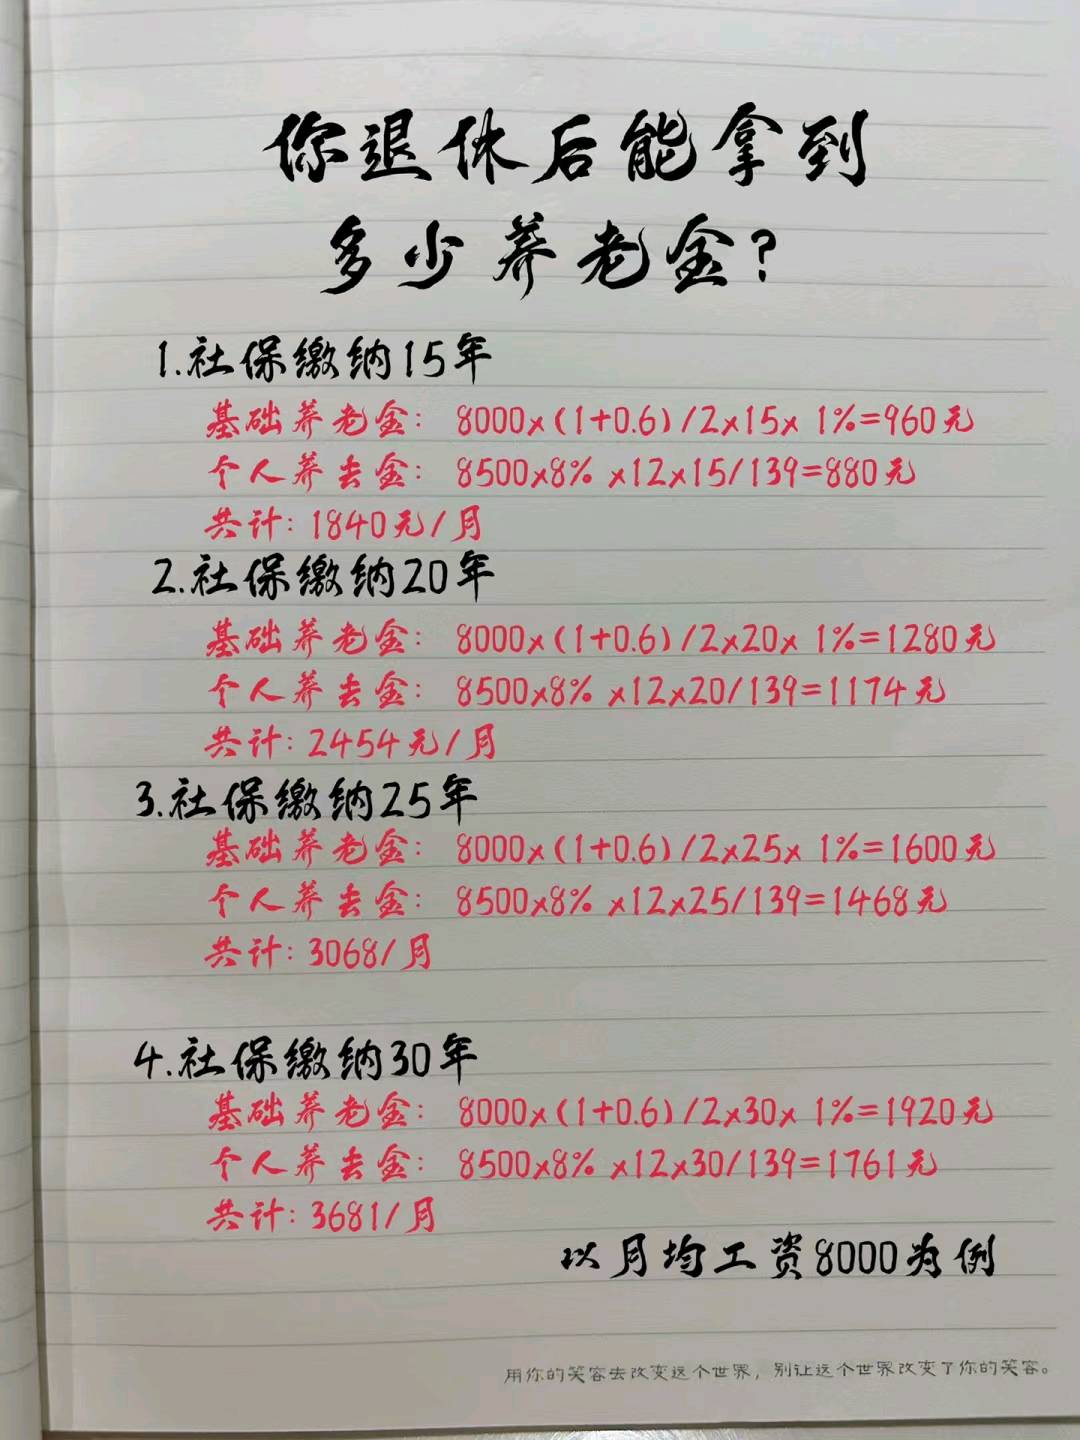 你退休后能拿到
多少养老金?
1.社保缴纳15年
基础养老金: 8000x(1+0.6)/2x15x 1%=960元
个人养去金: 8500x8% x12x15/139=880元
共计: 1840元/月
2.社保缴纳20年
基础养老金: 8000x(1+0.6)/2x20x 1%=1280元
个人养去金: 8500x8% x12x20/139=1174元
共计: 2454元/月
3.社保缴纳25年
基础养老金: 8000x(1+0.6)/2x25x 1%=1600元
个人养去金: 8500x8% x12x25/139=1468元
共计: 3068/月
4.社保缴纳30年
基础养老金: 8000x(1+0.6)/2x30x 1%=1920元
个人养去金: 8500x8% x12x30/139=1761元
共计: 3681/月
以月均工资8000为例
用你的笑容去改变这个世界，别让这个世界改变了你的笑容。